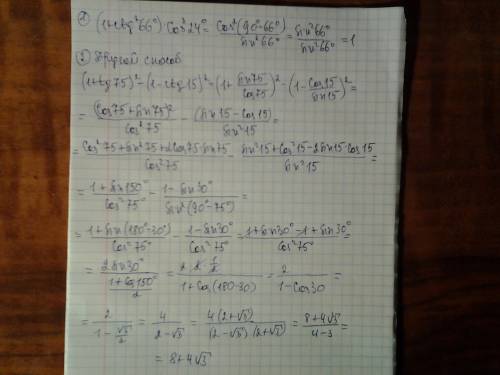 1) (1+ctg²66°)·Cos²24° = Cos²(90°-66°)/Sin²66° = Sin²66°/Sin²66° = 1
2) Другой способ
(1+tg75)² - (1-ctg15)² = (1+ Sin75/Cos75)² - (1- Cos15/Sin15)² =
= (Cos75+Sin75)²/Cos²75 - (Sin15-Cos15)/Sin²15 =
= Cos²75+Sin²75+2Cos75·Sin75/Cos²75 - Sin²15+Cos²15-2Sin15·Cos15/Sin²15 =
= 1+Sin150°/Cos²75° - 1-Sin30°/Sin²(90°-75°) =
= 1+Sin(180°-30°)/Cos²75° - 1-Sin30°/Cos²75° = 1+Sin30°-1+Sin30°/Cos²75° =
= 2Sin30°/(1+Cos150°/2) = 2·2·1/2/1+Cos(180-30) = 2/1-Cos30 =
= 2/(1-√3/2) = 4/2-√3 = 4(2+√3)/(2-√3)(2+√3) = 8+4√3/4-3 =
= 8+4√3